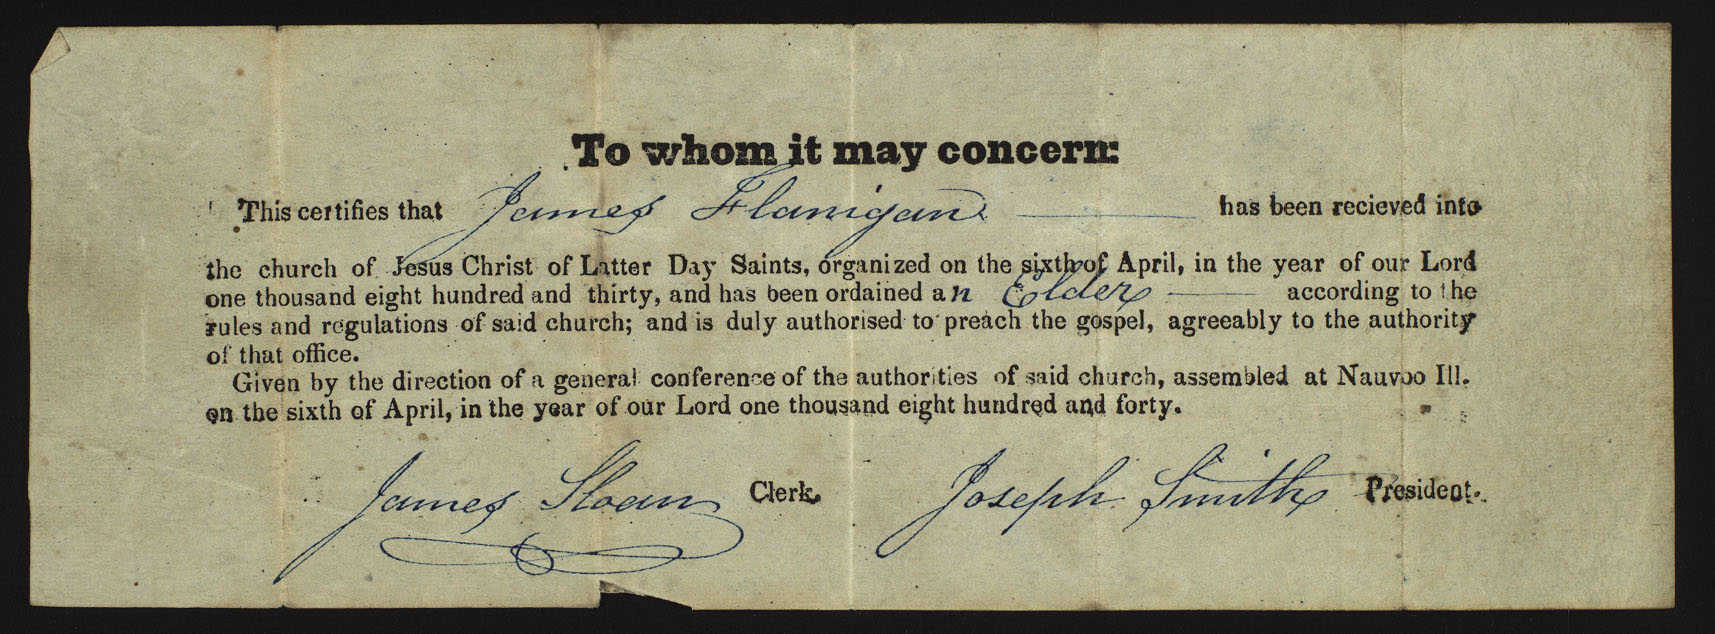 To whom it may concern:
This certifies that James Flanigan has been recieved into
the church of Jesus Christ of Latter Day Saints, organized on the sixth of April, in the year of our Lord
one thousand eight hundred and thirty, and has been ordained an Elder according to the
rules and regulations of said church; and is duly authorised to preach the gospel, agreeably to the authority
of that office.
Given by the direction of a general conference of the authorities of said church, assembled at Nauvoo Ill.
on the sixth of April, in the year of our Lord one thousand eight hundred and forty.
James Sloan Clerk. Joseph Smith President.